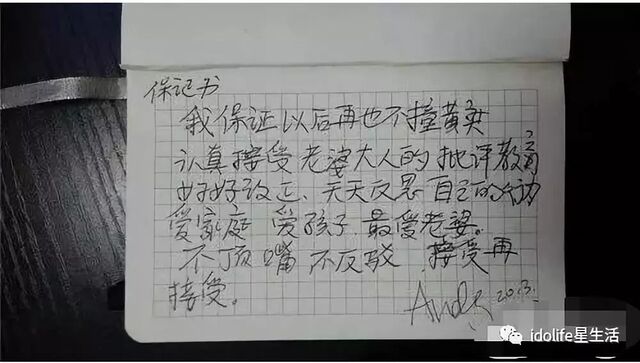 保记书
我保证以后再也不撞黄实
认真接受老婆大人的批评教育
好好改正、天天反思自己的行动
爱家庭 爱孩子 最爱老婆。
不顶嘴 不反驳 接受再
接受。
Andy
idolife星生活